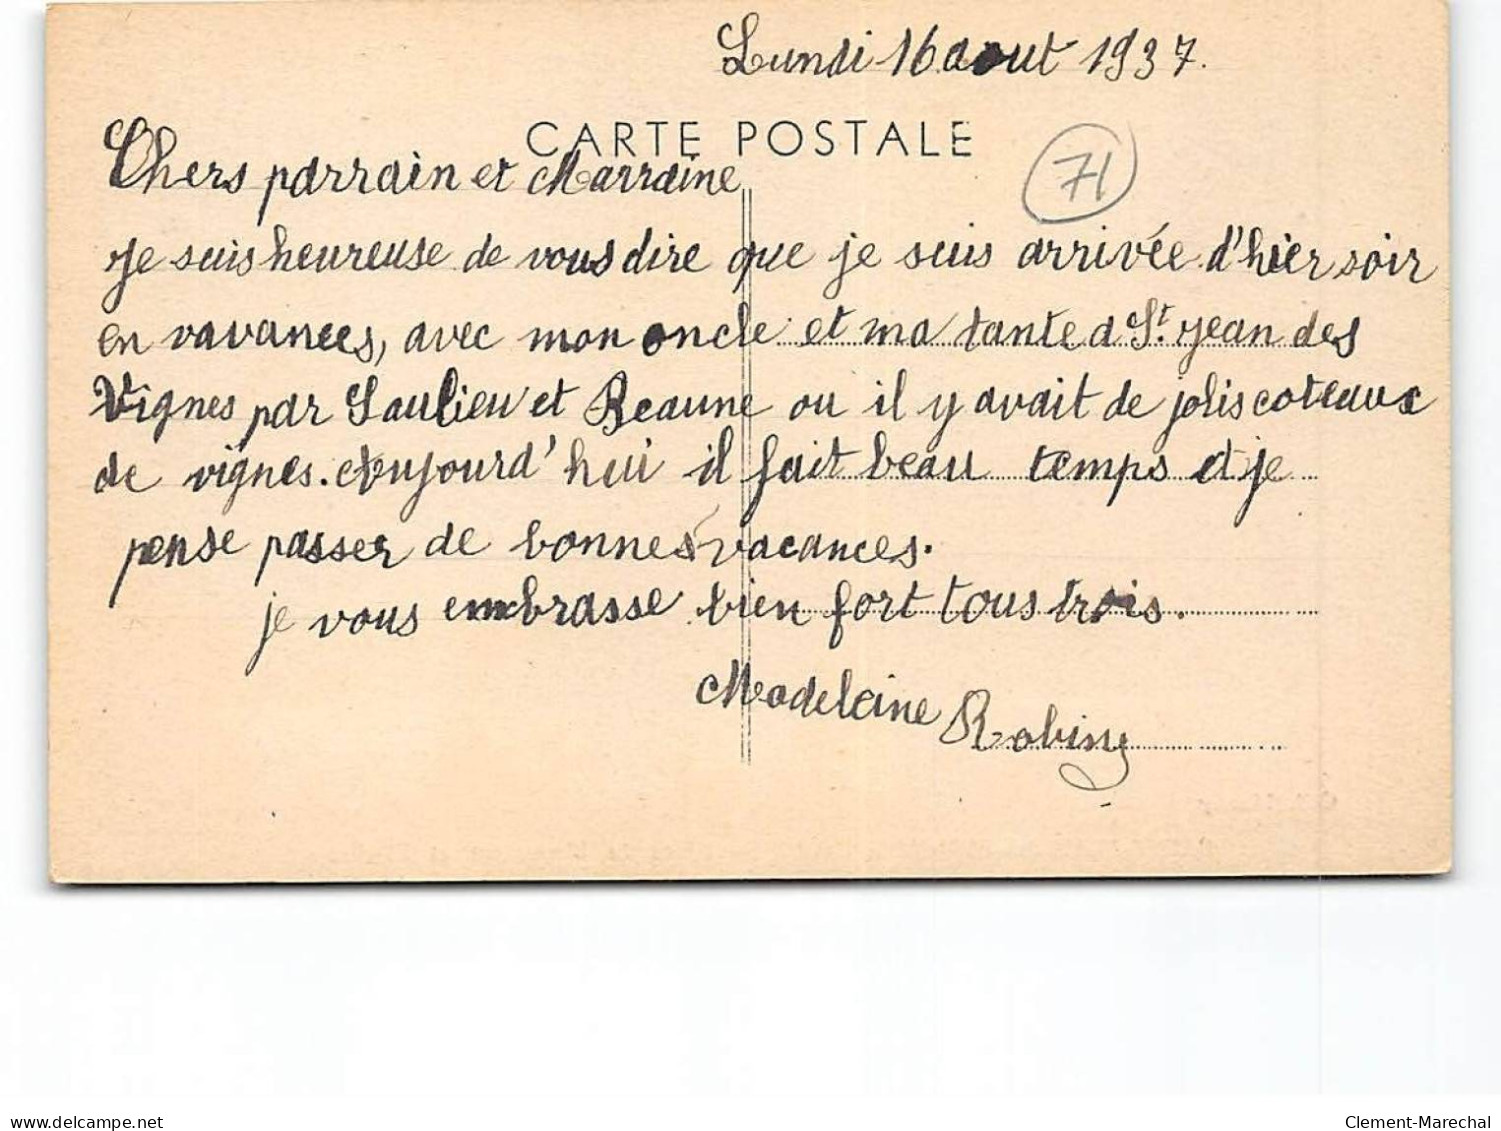 Lundi 16 aout 1937.
CARTE POSTALE
71
Chers parrain et Marraine
je suis heureuse de vous dire que je suis arrivée d'hier soir
en vavances, avec mon oncle et ma tante a St. jean des
Vignes par Saulieu et Beaune ou il y avait de jolis coteaux
de vignes. Aujourd'hui il fait beau temps et je
pense passer de bonnes vacances.
je vous embrasse bien fort tous trois.
Madeleine Robiny
delcampe.net
Clement-Marechal